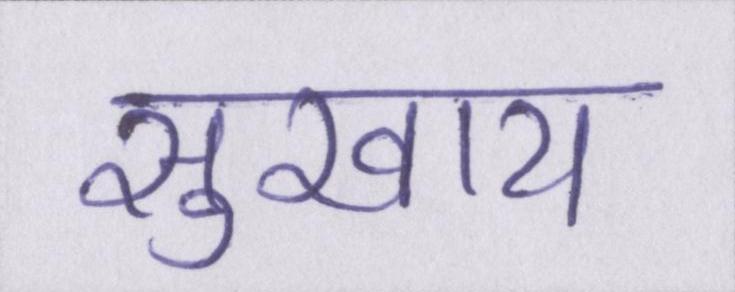 सुखाय